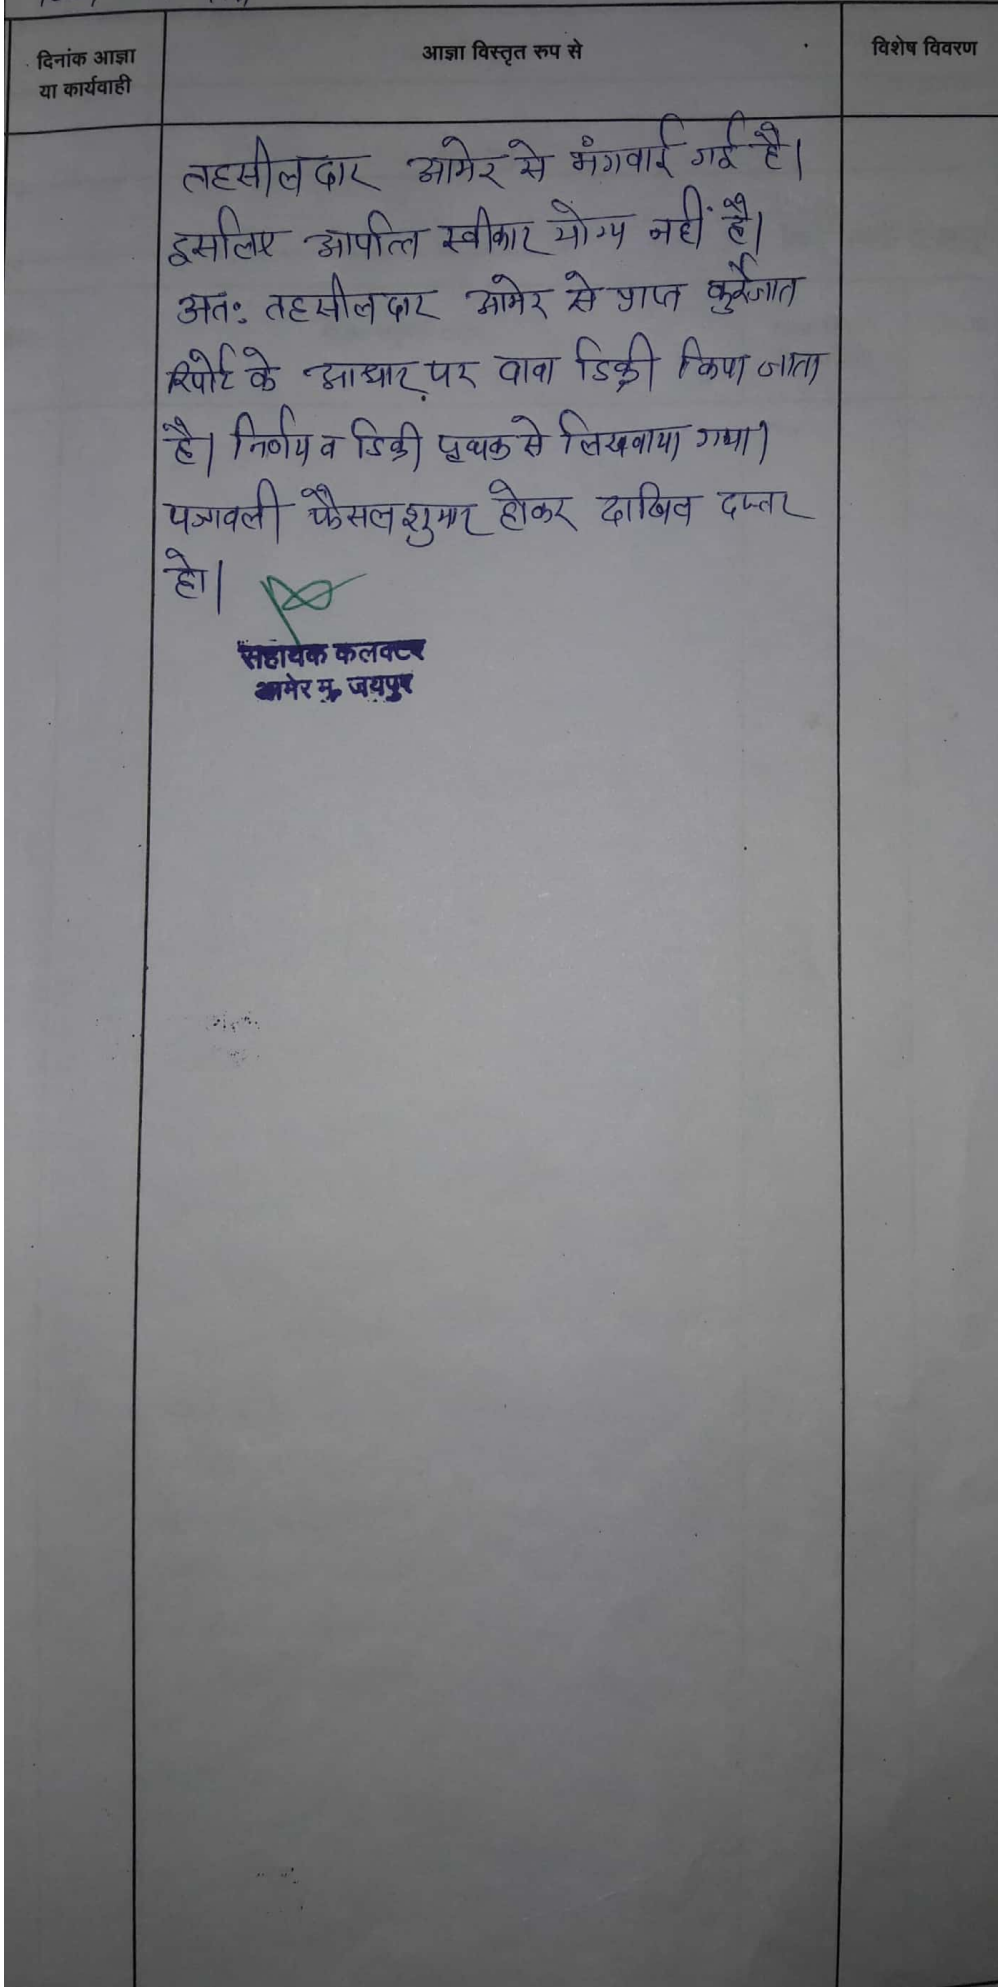 दिनांक आज्ञा
या कार्यवाही
आज्ञा विस्तृत रुप से
विशेष विवरण
तहसीलदार आमेर से मंगवाई गई है।
इसलिए आपत्ति स्वीकार योग्य नहीं है।
अतः तहसीलदार आमेर से प्राप्त कुर्रेजात
रिपोर्ट के आधार पर वाद डिक्री किया जाता
है। निर्णय व डिक्री पृथक से लिखवाया गया।
पत्रावली फैसलशुमार होकर दाखिल दफ्तर
हो।
सहायक कलक्टर
आमेर मु. जयपुर